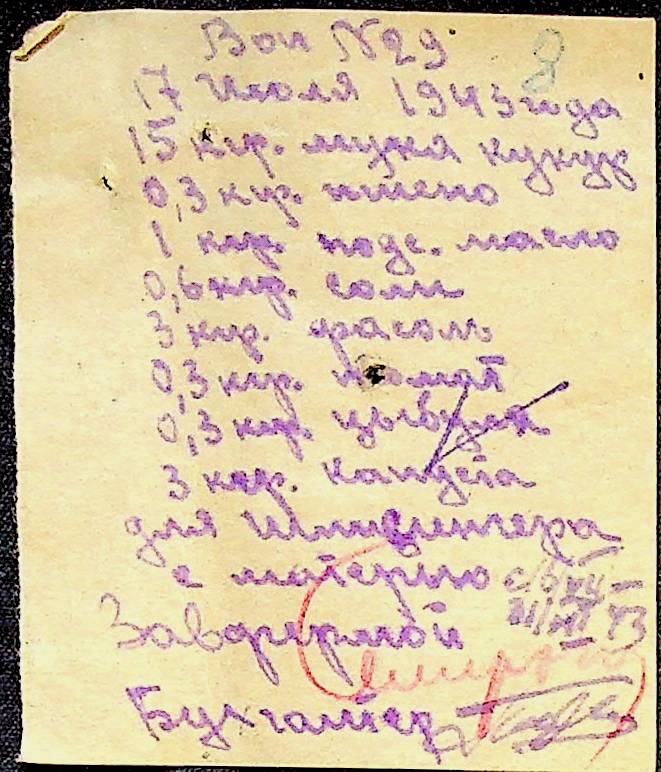 Вон №29
8
17 июля 1943 года
15 кгр. мука кукур
0,3 кгр. пшено
1 кгр. подс. масло
0,6 кгр. соли
3 кгр. фасоль
0,3 кгр. томат
0,3 кгр. цыбуля
3 кгр. капуста
для
с матерью
Завфермой
Бухгалтер